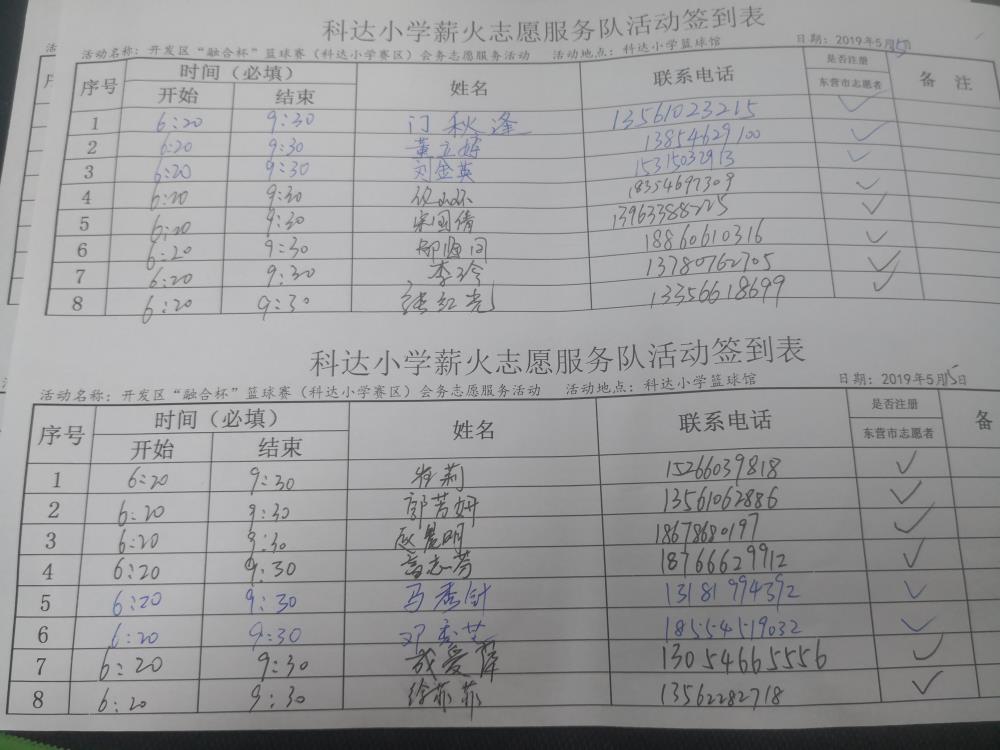 科达小学薪火志愿服务队活动签到表
活动名称：开发区“融合杯”篮球赛（科达小学赛区）会务志愿服务活动 活动地点：科达小学篮球馆 日期：2019年5月5日
序号 时间（必填） 姓名 联系电话 是否注册 备 注
开始 结束 东营市志愿者
1 6:20 9:30 门秋逢 13561023215 ✓
2 6:20 9:30 董立婷 13854629100 ✓
3 6:20 9:30 刘金英 15315032913 ✓
4 6:20 9:30 18354697309 ✓
5 6:20 9:30 宋国倩 13963388225 ✓
6 6:20 9:30 18860610316 ✓
7 6:20 9:30 李玲 13780762705 ✓
8 6:20 9:30 张红亮 13356618699 ✓
科达小学薪火志愿服务队活动签到表
活动名称：开发区“融合杯”篮球赛（科达小学赛区）会务志愿服务活动 活动地点：科达小学篮球馆 日期：2019年5月5日
序号 时间（必填） 姓名 联系电话 是否注册 备
开始 结束 东营市志愿者
1 6:20 9:30 崔莉 15266039818 ✓
2 6:20 9:30 郭芳妍 13561062886 ✓
3 6:20 9:30 18678680197 ✓
4 6:20 9:30 高志芳 18766629912 ✓
5 6:20 9:30 马秀针 13181994392 ✓
6 6:20 9:30 邓秀芝 18554519032 ✓
7 6:20 9:30 成爱萍 13054665556 ✓
8 6:20 9:30 徐菲菲 13562282718 ✓